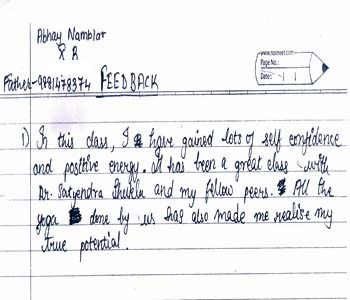 Abhay Nambiar
www.navneet.com
Page No.:
Date:
Father-9881478874 FEEDBACK
1) In this class, I have gained lots of self confidence
and positive energy. It has been a great class with
Dr. Satyendra Shukla and my fellow peers. All the
yoga done by us has also made me realise my
true potential.